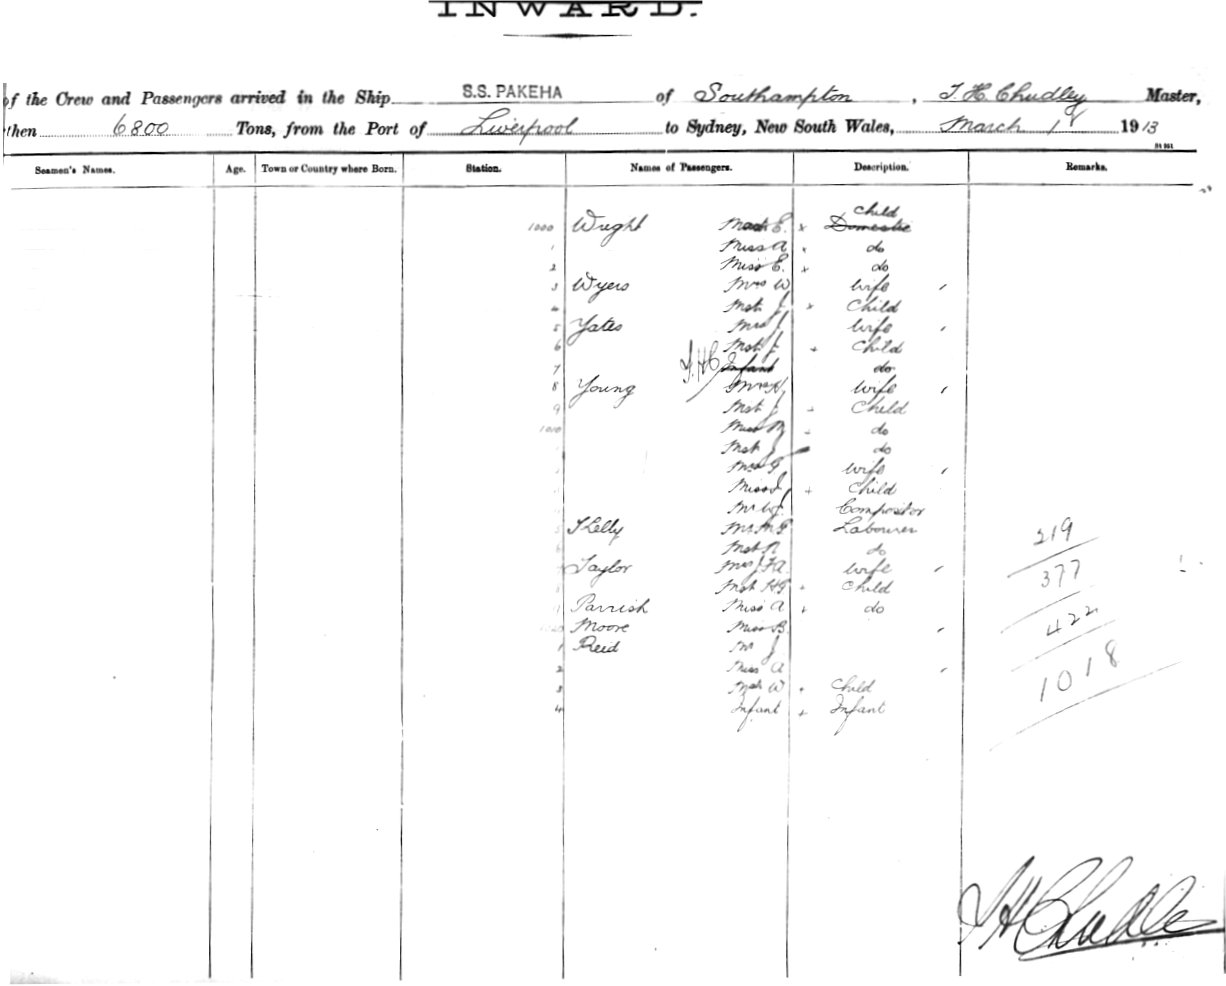 INWARD.
of the Crew and Passengers arrived in the Ship S.S. PAKEHA of Southampton, T. H. Chudley Master,
then 6800 Tons, from the Port of Liverpool to Sydney, New South Wales, March 18 1913
Seamen's Names. Age. Town or Country where Born. Station. Names of Passengers. Description. Remarks.
Child
1000 Wright E. x Domestic
1 Miss A x do
2 Miss E. x do
3 Wyers Mrs W wife
4 Mst J x Child
5 Yates Mrs J wife
6 Mst + Child
7 T.H.C Infant do
8 Young Mrs wife
9 Mst J + Child
1010 Miss + do
Mst J do
Mrs wife
Miss + Child
Mr Compositor
5 Kelly Labourer
6 Mst do
Taylor Mrs wife
Mst + Child
Parrish Miss A + do
Moore Miss B.
1 Reid Mr J
2 Miss A
3 Mst W + Child
4 Infant + Infant
219
377
422
1018
T H Chudley